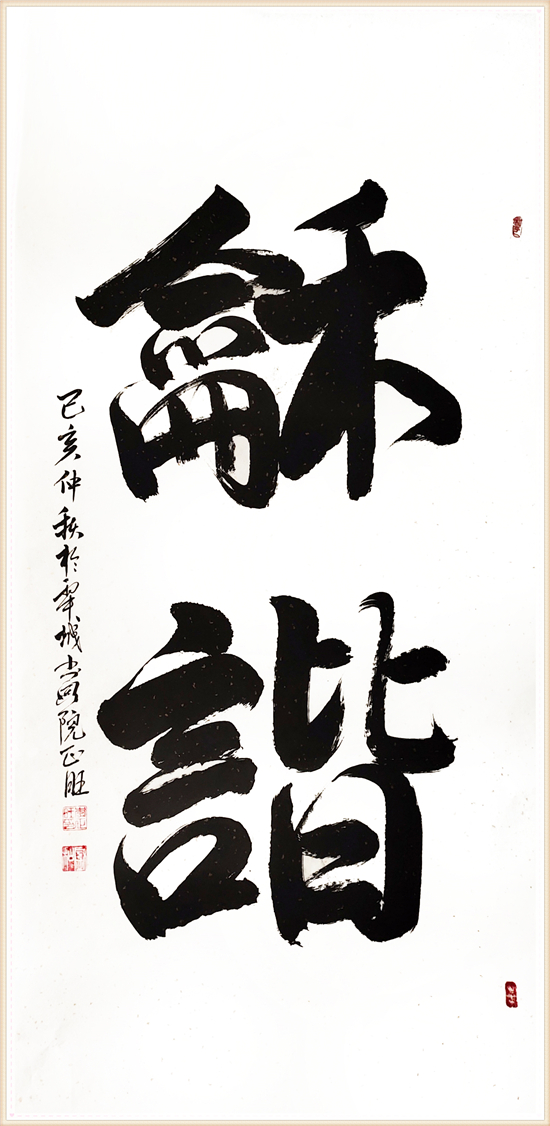 龢
諧
己亥仲秋於翠城书画院正旺